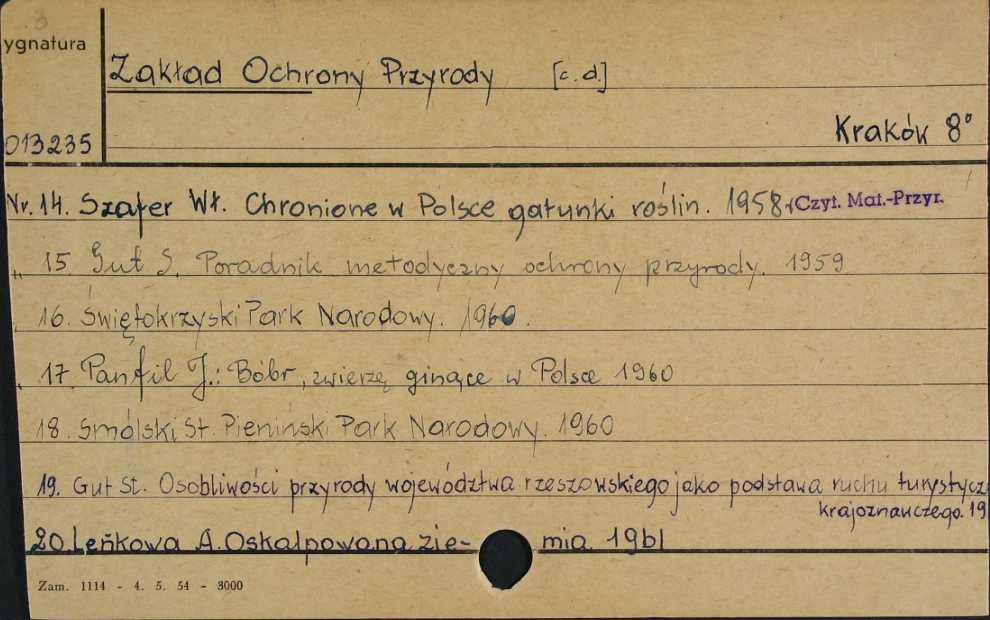 3
ygnatura
Zakład Ochrony Przyrody [c.d.]
013235
Kraków 8°
Nr. 14. Szafer Wł. Chronione w Polsce gatunki roślin. 1958 Czyt. Mat.-Przyr.
" 15. Gut S. Poradnik metodyczny ochrony przyrody. 1959
16. Świętokrzyski Park Narodowy. 1960.
17. Panfil J.: Bóbr, zwierzę ginące w Polsce 1960
18. Smólski St. Pieniński Park Narodowy. 1960
19. Gut St. Osobliwości przyrody województwa rzeszowskiego jako podstawa ruchu turystycz
krajoznawczego. 19
20. Leńkowa A. Oskalpowana zie- mia 1961
Zam. 1114 - 4. 5. 54 - 3000